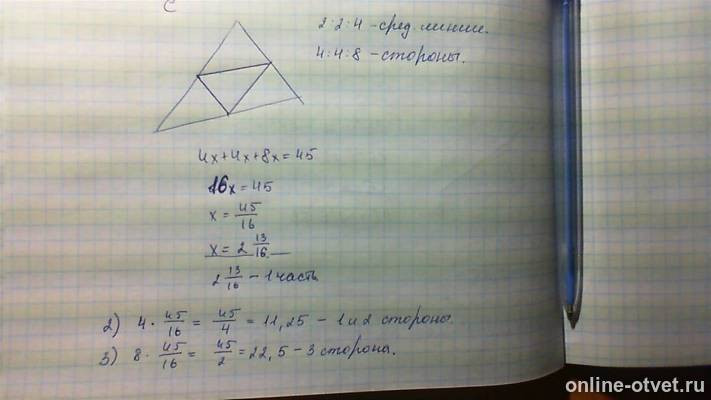 C
2:2:4 - сред. линии.
4:4:8 - стороны.
4x+4x+8x=45
16x=45
x = 45/16
x = 2 13/16
2 13/16 - 1 часть
2) 4 · 45/16 = 45/4 = 11,25 - 1 и 2 стороны.
3) 8 · 45/16 = 45/2 = 22,5 - 3 сторона.
online-otvet.ru